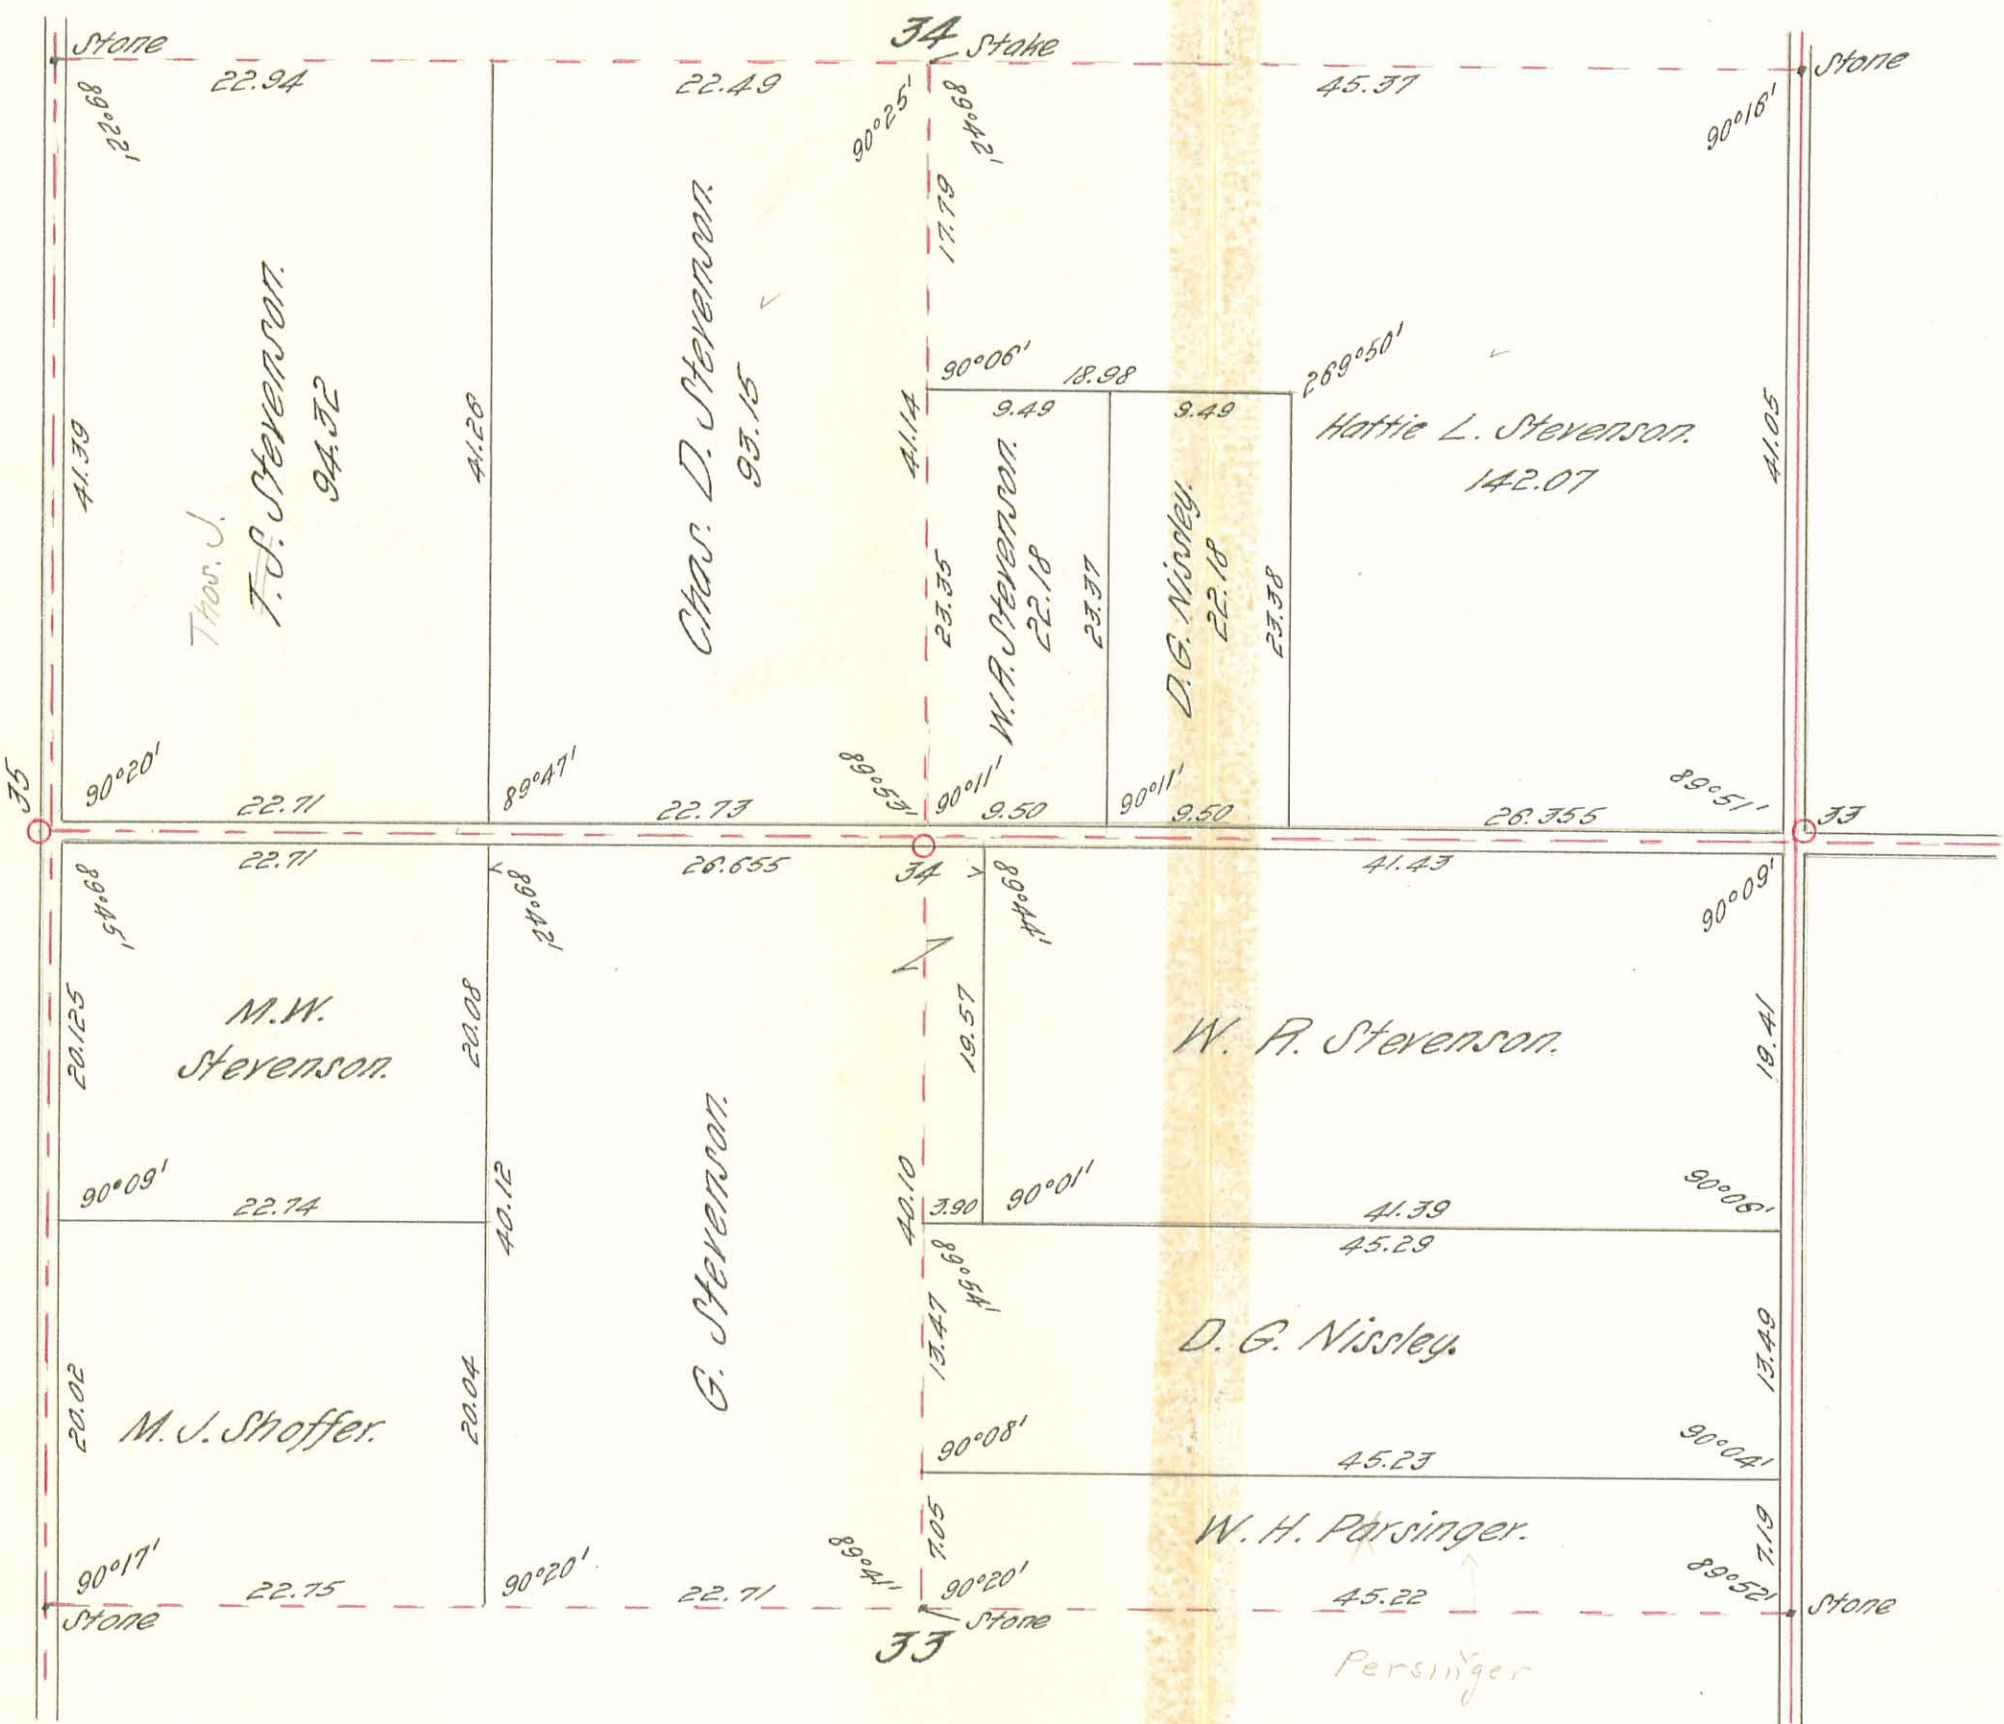 Stone
34 Stake
Stone
22.94
22.49
45.37
89°22'
90°25'
89°42'
90°16'
17.79
T. S. Stevenson.
94.32
Thos. J.
Chas. D. Stevenson.
93.15
41.39
41.26
41.14
90°06'
18.98
269°50'
9.49
9.49
Hattie L. Stevenson.
142.07
41.05
23.35
W.R. Stevenson.
22.18
23.37
D.G. Nissley.
22.18
23.38
35
90°20'
22.71
89°47'
22.73
89°53'
90°11'
9.50
90°11'
9.50
26.355
89°51'
33
22.71
26.655
34
41.43
89°45'
89°42'
89°44'
90°09'
M.W.
Stevenson.
20.125
20.08
19.57
W. R. Stevenson.
19.41
90°09'
22.74
40.12
G. Stevenson.
40.10
3.90
90°01'
41.39
90°06'
45.29
89°54'
13.47
D. G. Nissley.
13.49
20.02
M. J. Shoffer.
20.04
90°08'
45.23
90°04'
7.05
W. H. Parsinger.
7.19
90°17'
22.75
90°20'
22.71
89°41'
90°20'
45.22
89°52'
Stone
33
Stone
Stone
Persinger